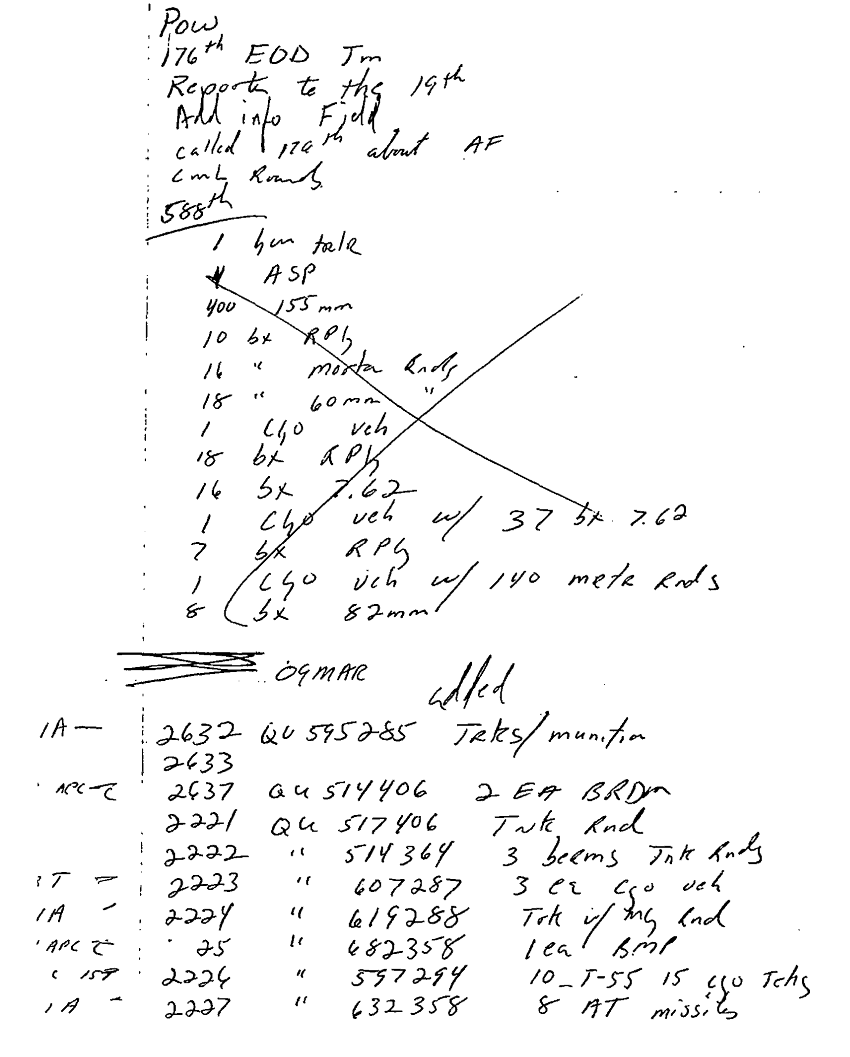 POW
176th EOD Tm
Reporte to the 19th
Add info Field
called 176th about AF
Cml Rounds
588th
1 hm talk
ASP
400 155mm
10 bx RPG
16 " morta Rnds
18 " 60mm "
1 Cgo veh
18 bx RPG
16 bx 7.62
1 Cgo veh w/ 37 bx 7.62
7 bx RPG
1 Cgo veh w/ 140 mota Rnds
8 bx 82mm
09MAR
added
1A — 2632 QU 595285 Trks/munition
2633
APC-C 2637 QU 514406 2 EA BRDM
2221 QU 517406 Tnk Rnd
2222 " 514364 3 berms Tnk Rnds
3T — 2223 " 607287 3 ea cgo veh
1A - 2224 " 619288 Trk w/ mg Rnd
APC C 25 " 682358 1ea BMP
2226 " 597294 10_T-55 15 cgo
1A - 2227 " 632358 8 AT missiles